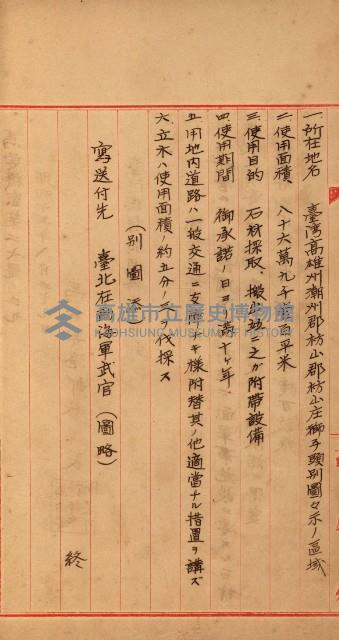 一、所在地名　臺湾高雄州潮州郡枋山庄獅子頭別圖々示ノ區域
二、使用面積　八十六萬九千
平米
三、使用目的　石材採取、搬出並ニ之ガ附帶設備
四、使用期間　御承諾ノ日ヨリ
十ヶ年
五、用地内道路ハ一般交通ニ支障ナキ様附替其ノ他適當ナル措置ヲ講ズ
六、立木ハ使用面積ノ約五分ノ
伐採ス
（別圖添
寫送付先　臺北在
海軍武官（圖略）
終
高雄市立歷史博物館
KAOHSIUNG MUSEUM OF HISTORY